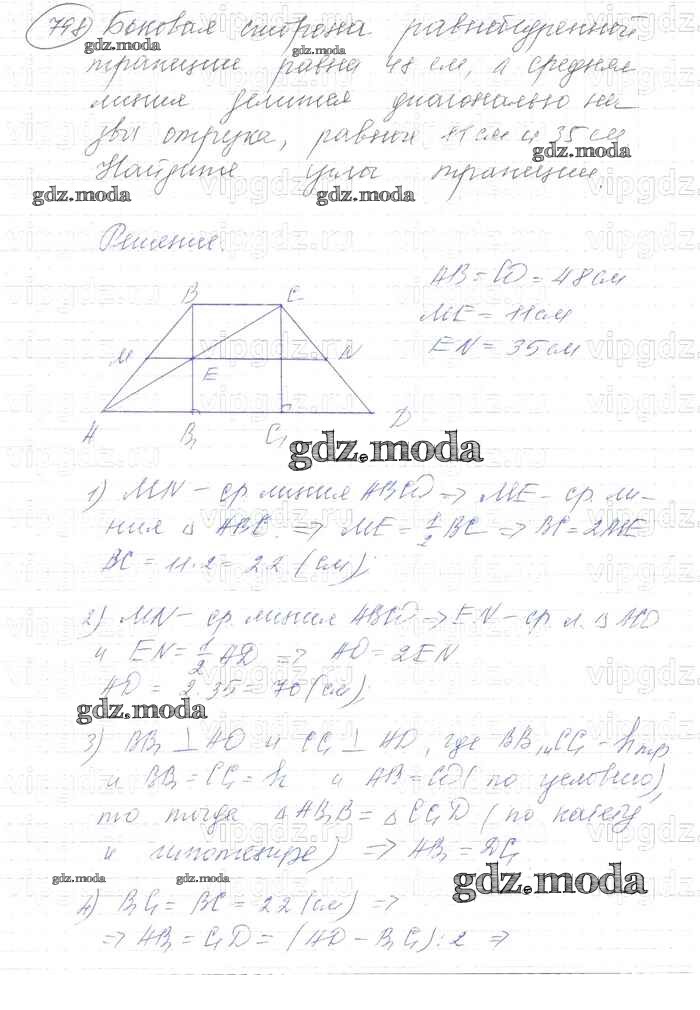 798 Боковая сторона равнобедренной
трапеции равна 48 см, а средняя
линия делится диагональю на
два отрезка, равных 11 см и 35 см
Найдите углы трапеции.
Решение.
AB = CD = 48 см
ME = 11 см
EN = 35 см
B C
M E N
A B₁ C₁ D
1) MN – ср. линия ABCD => ME – ср. ли-
ния △ ABC. => ME = 1/2 BC => BC = 2ME
BC = 11·2 = 22 (см);
2) MN – ср. линия ABCD => EN – ср. л. △ ACD
и EN = 1/2 AD => AD = 2EN
AD = 2·35 = 70 (см);
3) BB₁ ⊥ AD и CC₁ ⊥ AD, где BB₁ и CC₁ – h тр
и BB₁ = CC₁ = h и AB = CD (по условию),
то тогда △ AB₁B = △ CC₁D (по катету
и гипотенузе) => AB₁ = DC₁
4) B₁C₁ = BC = 22 (см) =>
=> AB₁ = C₁D = (AD – B₁C₁) : 2 =>
gdz.moda
gdz.moda
gdz.moda
gdz.moda
gdz.moda
gdz.moda
gdz.moda
gdz.moda
gdz.moda
gdz.moda
vipgdz.ru